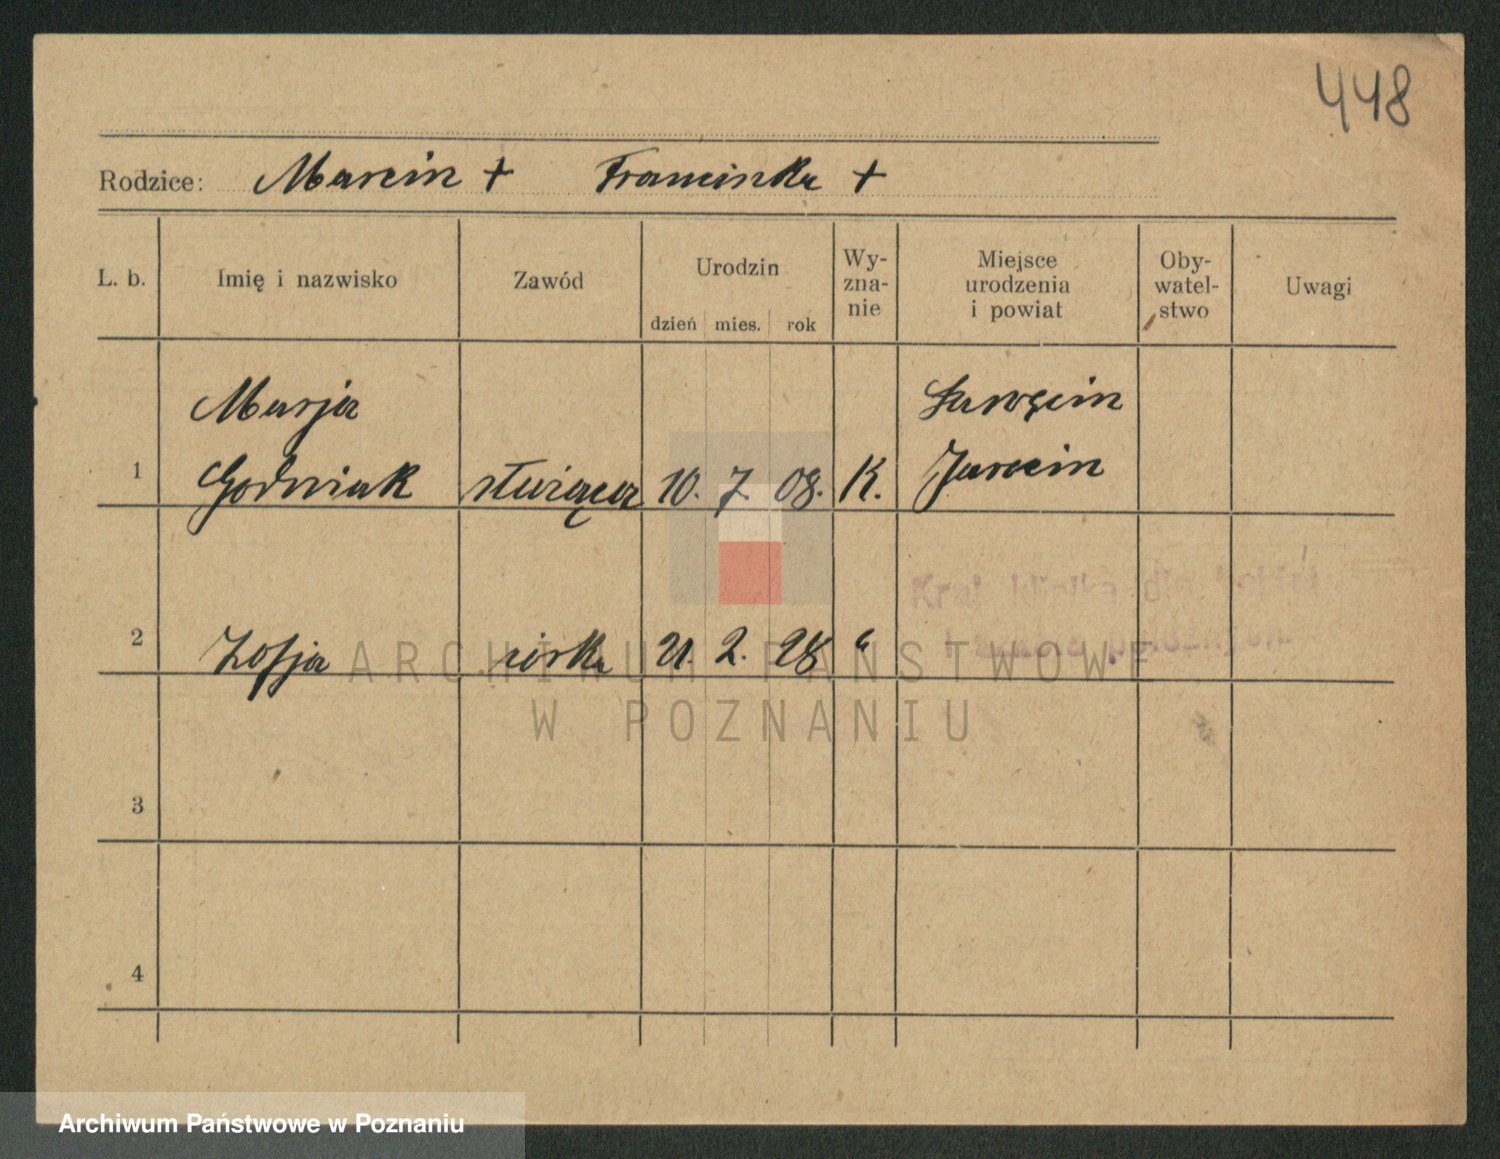 448
Rodzice: Marcin + Franciszka +
L. b. Imię i nazwisko Zawód Urodzin dzień mies. rok Wy-
zna-
nie Miejsce
urodzenia
i powiat Oby-
watel-
stwo Uwagi
Marja
1 Godniak służąca 10. 7. 08. K. Jarocin
2 Zofja córka 21. 2. 28 "
Kraj. klinika dla kobiet
ARCHIWUM PAŃSTWOWE
W POZNANIU
3
4
Archiwum Państwowe w Poznaniu